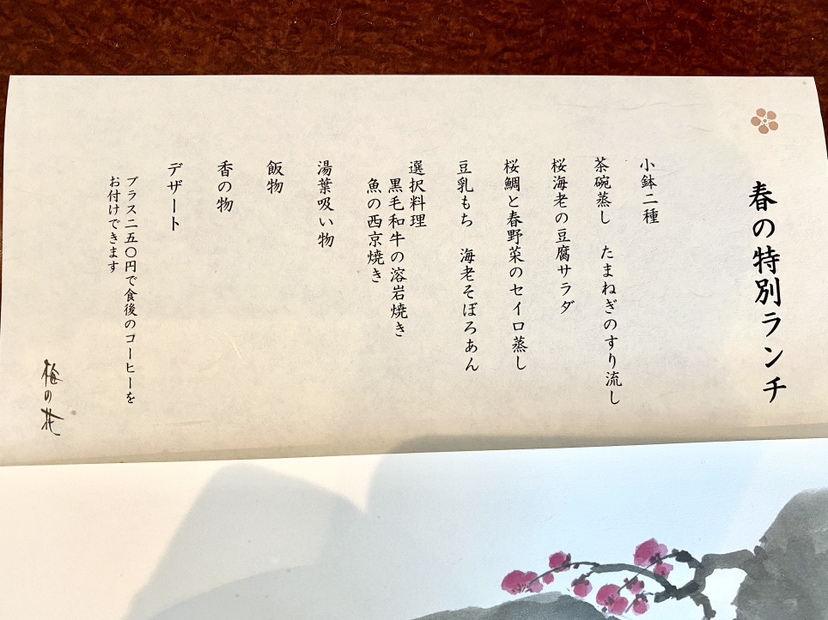 春の特別ランチ
小鉢二種
茶碗蒸し　たまねぎのすり流し
桜海老の豆腐サラダ
桜鯛と春野菜のセイロ蒸し
豆乳もち　海老そぼろあん
選択料理
黒毛和牛の溶岩焼き
魚の西京焼き
湯葉吸い物
飯物
香の物
デザート
プラス二五〇円で食後のコーヒーを
お付けできます
梅の花